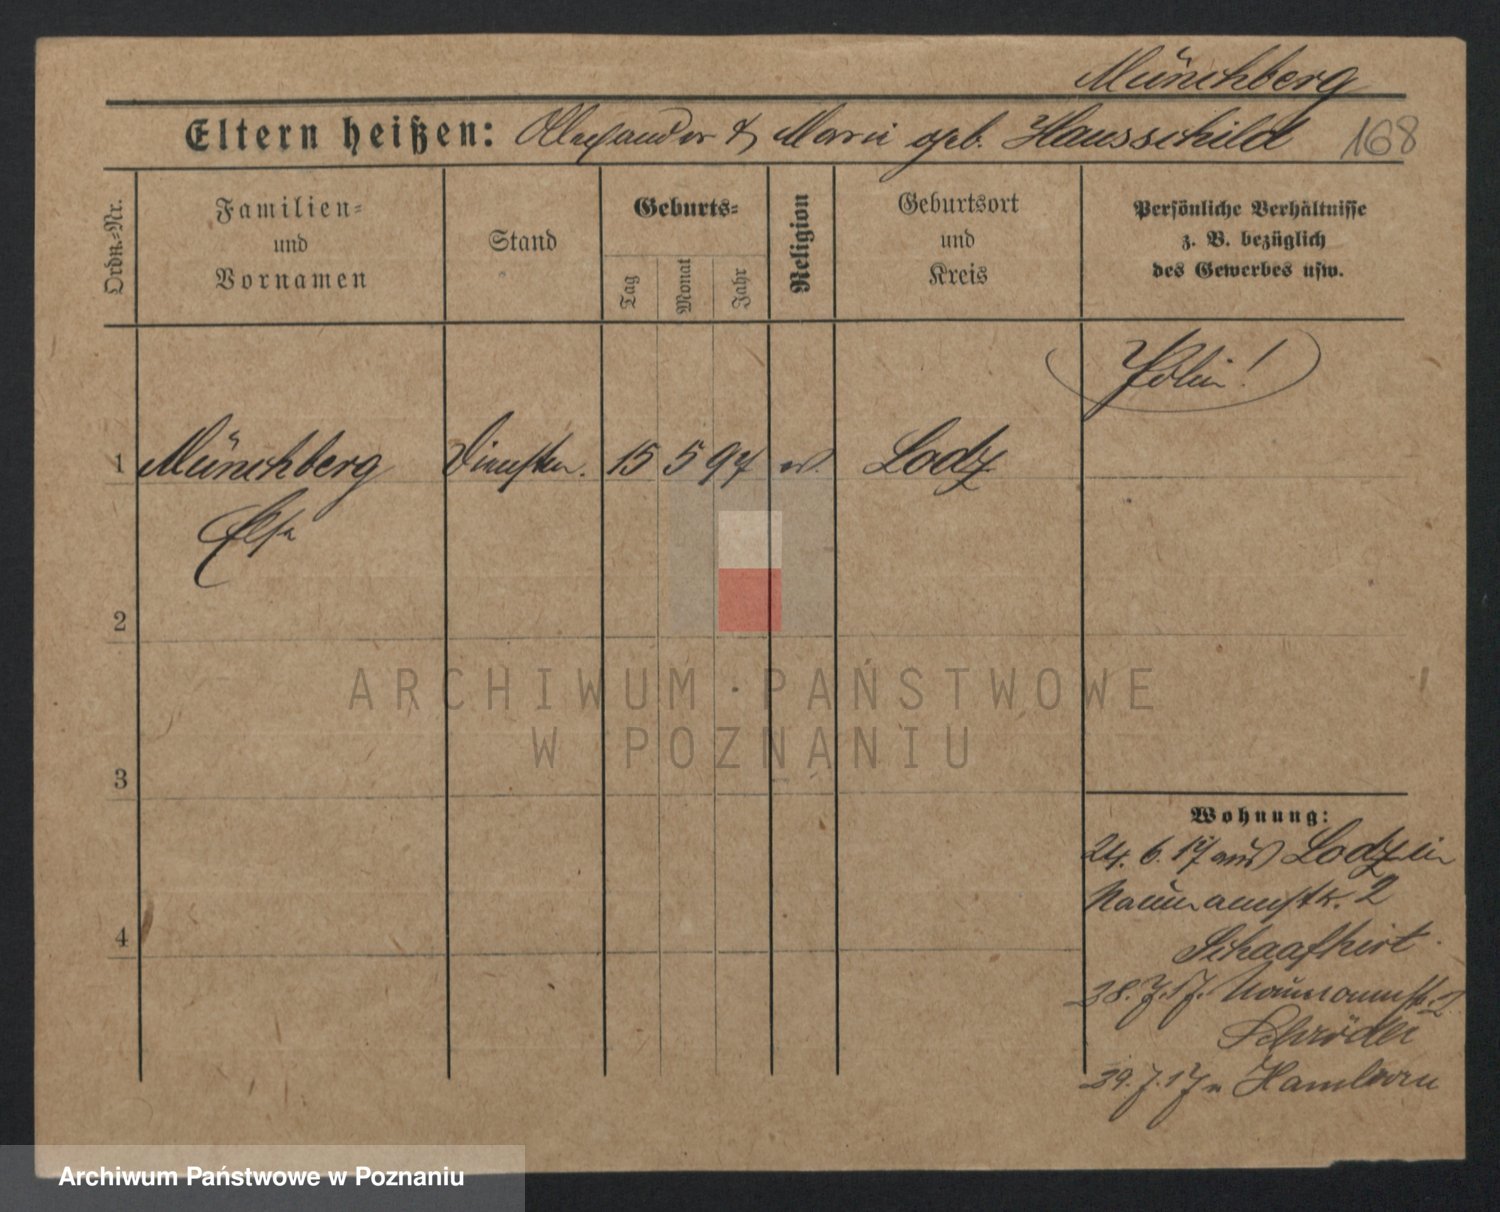 Münchberg
Eltern heißen: Alexander & Marie geb. Hausschild 168
Ordn.-Nr.
Familien-
und
Vornamen
Stand
Geburts-
Tag
Monat
Jahr
Religion
Geburtsort
und
Kreis
Persönliche Verhältnisse
z. B. bezüglich
des Gewerbes usw.
Polin!
1 Münchberg 15 5 97 ev. Lodz
Else
2
3
4
ARCHIWUM·PAŃSTWOWE
W POZNANIU
Wohnung:
24. 6. 17 aus Lodz in
Naumannstr. 2
Schaafhirt
28. 7. 17. Naumannstr. 2
Schröder
29. 7. 17 n Hamborn
Archiwum Państwowe w Poznaniu